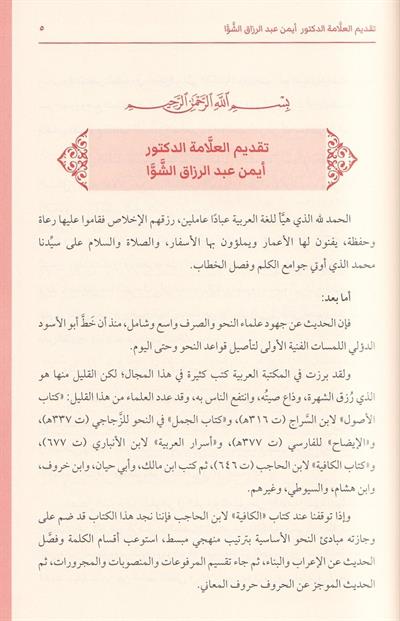 تقديم العلَّامة الدكتور أيمن عبد الرزاق الشَّوَّا ٥
بِسْمِ اللَّهِ الرَّحْمَنِ الرَّحِيمِ
تقديم العلَّامة الدكتور
أيمن عبد الرزاق الشَّوَّا
الحمد لله الذي هيَّأ للغة العربية عبادًا عاملين، رزقهم الإخلاص فقاموا عليها رعاة
وحفظة، يفنون لها الأعمار ويملؤون بها الأسفار، والصلاة والسلام على سيِّدنا
محمد الذي أوتي جوامع الكلم وفصل الخطاب.
أما بعد:
فإن الحديث عن جهود علماء النحو والصرف واسع وشامل، منذ أن خَطَّ أبو الأسود
الدؤلي اللمسات الفنية الأولى لتأصيل قواعد النحو وحتى اليوم.
ولقد برزت في المكتبة العربية كتب كثيرة في هذا المجال؛ لكن القليل منها هو
الذي رُزق الشهرة، وذاع صيتُه، وانتفع الناس به، وقد عدد العلماء من هذا القليل: «كتاب
الأصول» لابن السَّراج (ت ٣١٦هـ)، و«كتاب الجمل» في النحو للزَّجاجي (ت ٣٣٧هـ)،
و«الإيضاح» للفارسي (ت ٣٧٧هـ)، و«أسرار العربية» لابن الأنباري (ت ٦٧٧)،
و«كتاب الكافية» لابن الحاجب (ت ٦٤٦)، ثم كتب ابن مالك، وأبي حيان، وابن خروف،
وابن هشام، والسيوطي، وغيرهم.
وإذا توقفنا عند كتاب «الكافية» لابن الحاجب فإننا نجد هذا الكتاب قد ضم على
وجازته مبادئ النحو الأساسية بترتيب منهجي مبسط، استوعب أقسام الكلمة وفصَّل
الحديث عن الإعراب والبناء، ثم جاء تقسيم المرفوعات والمنصوبات والمجرورات، ثم
الحديث الموجز عن الحروف حروف المعاني.